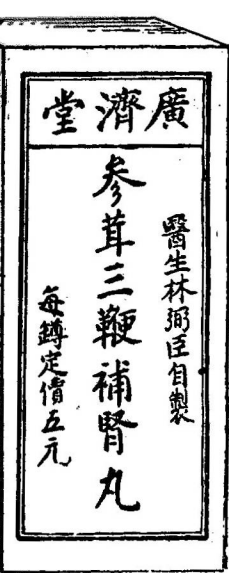 廣濟堂
醫生林弼臣自製
參茸三鞭補腎丸
每鐏定價五元